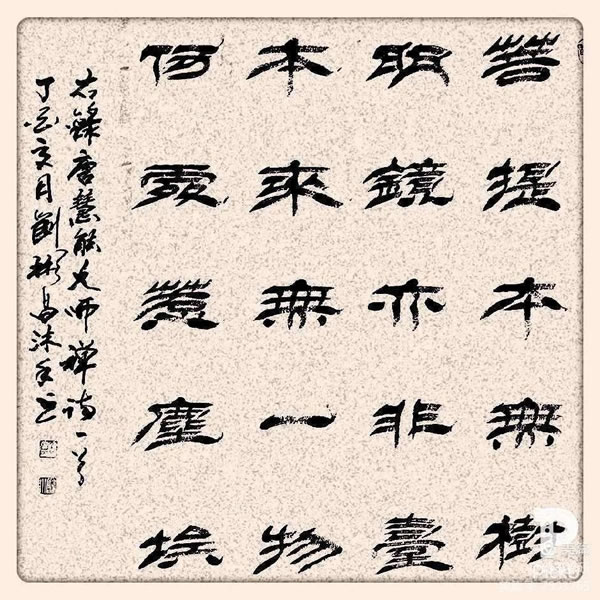 菩提本無樹
明鏡亦非臺
本來無一物
何處惹塵埃
右錄唐慧能大師禪詩一首
丁酉亥月劉彬昌沐手書